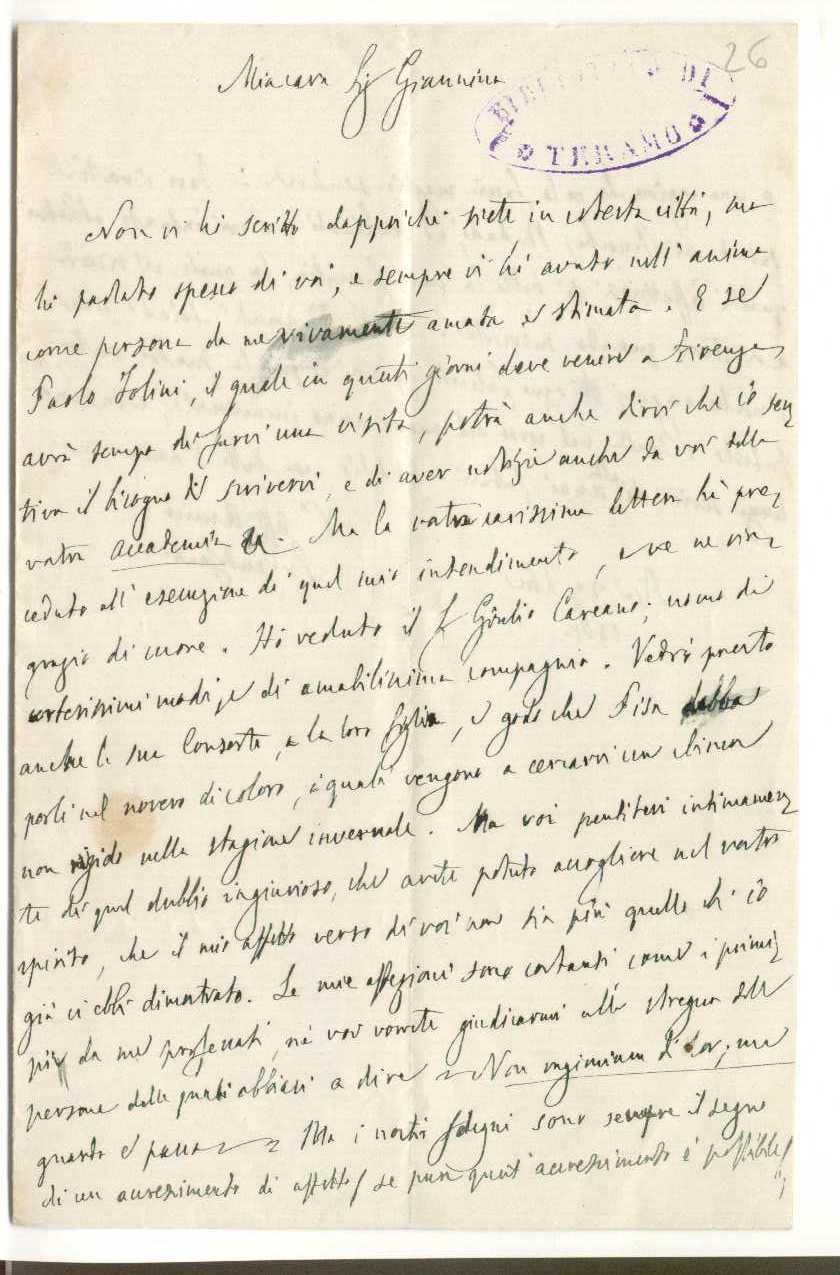 26
Mia cara Sig Giannina
BIBLIOTECA DI
TERAMO
Non vi hò scritto dappoichè siete in cotesta città, ma
hò parlato spesso di voi, e sempre vi hò avuto nell' anima
come persona da me vivamente amata e stimata. E se
Paolo il quale in questi giorni deve venire a Firenze,
avrà tempo di farvi una visita, potrà anche dirvi che io sen=
tiva il bisogno di scrivervi, e di aver notizie anche da voi della
vostra accademia. Ma la vostra carissima lettera hà pre=
ceduto all' esecuzione di quel mio intendimento, e ve ne rin=
grazio di cuore. Hò veduto il S Giulio Carcano; uomo di
cortesissimi modi, e di amabilissima compagnia. Vedrò presto
anche la sua Consorte, e la loro figlia, e godo che Pisa debba
porli nel novero di coloro, i quali vengono a cercarvi un clima
non rigido nella stagione invernale. Ma voi pentitevi intimamen=
te di quel dubbio ingiurioso, che avete potuto accogliere nel vostro
spirito, che il mio affetto verso di voi non sia più quello ch' io
già vi ebbi dimostrato. Le mie affezioni sono costanti come i princi=
pii da me professati, nè voi vorrete giudicarmi alla stregua delle
persone delle quali abbiasi a dire - Non ragioniam di lor, ma
guarda e passa - Ma i nostri sdegni sono sempre il segno
di un accrescimento di affetto/ se pure quest' accrescimento è possibile/;